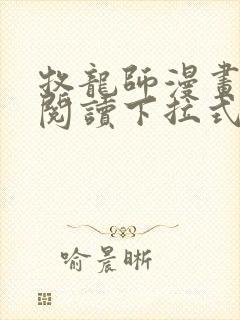 牧龍師漫畫
閱讀下拉式
喻晨晰